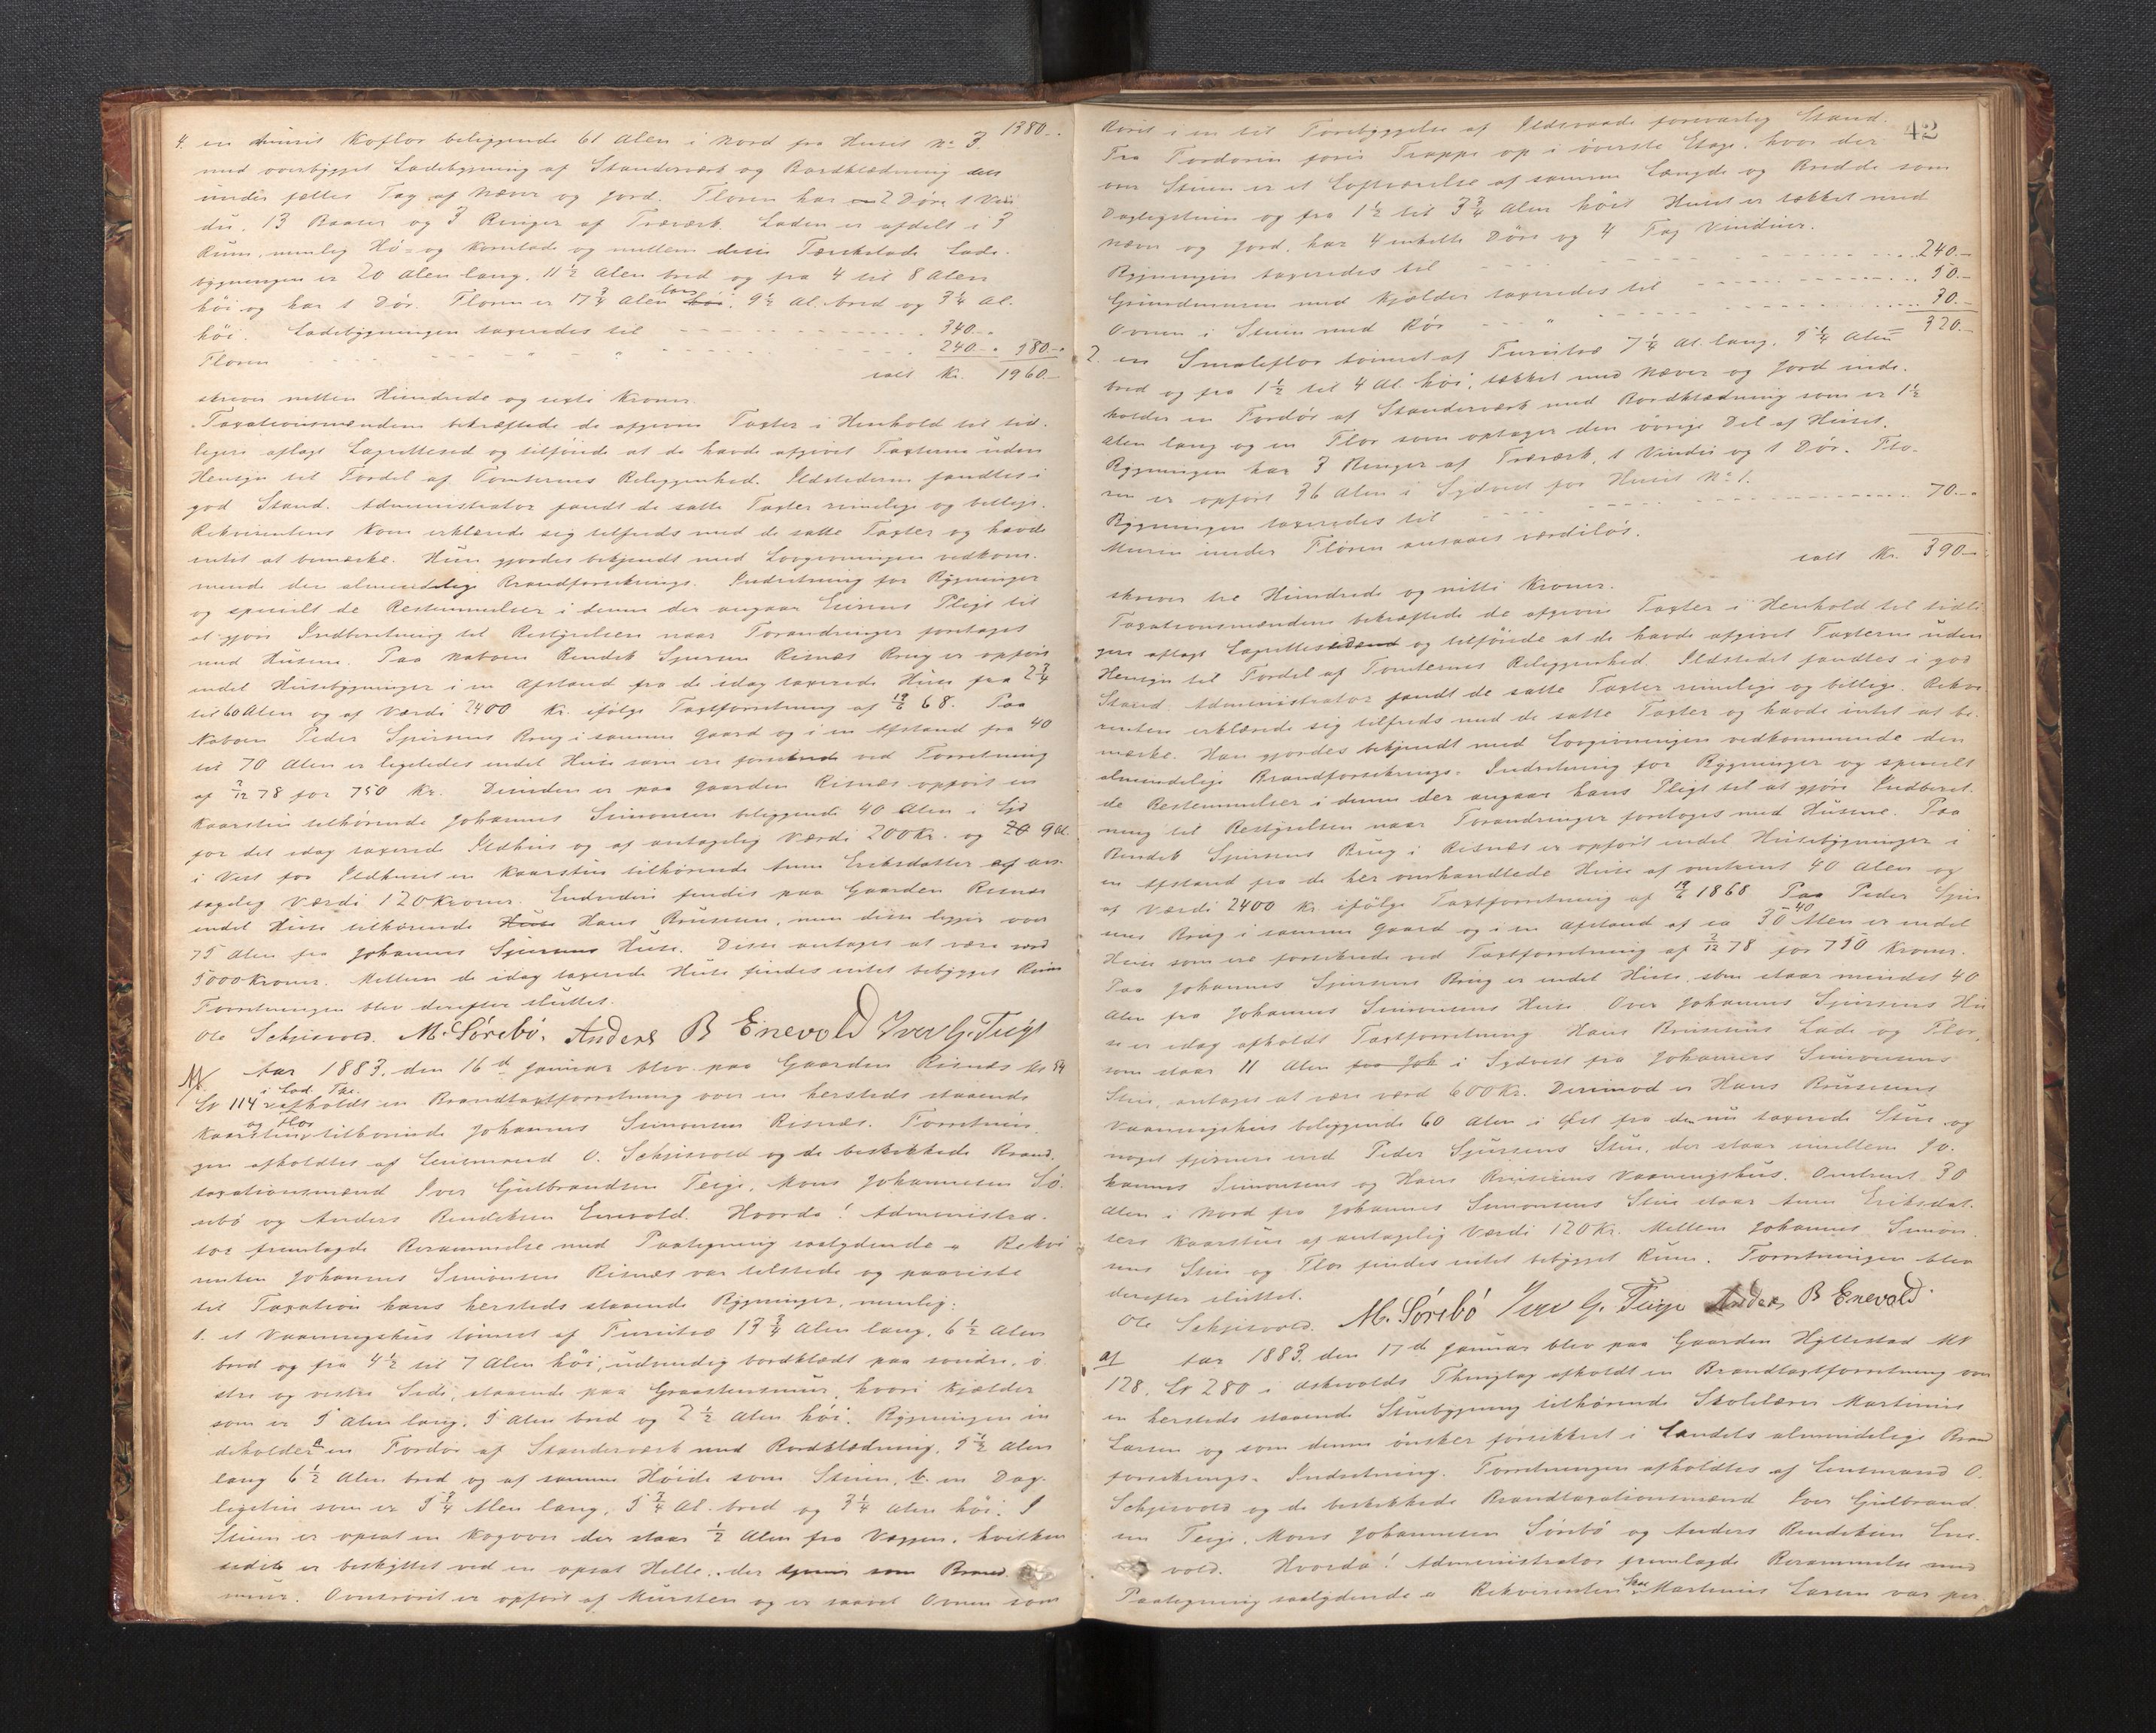 1380 -.
4. en tømret Koflor beliggende 61 Alen i Nord fra Huset No 3.
med overbygget Ladebygning af Standerværk og Bordklædning det
under fælles Tag af Næver og Jord. Floren har 2 Døre 1 Vin
du, 13 Baaser og 3 Binger af Træværk. Laden er afdelt i 3
Rum, nemlig Hø- og Kornlade og mellem disse Tærskelade. Lade-
bygningen er 20 Alen lang, 11 1/2 Alen bred og fra 4 til 8 Alen
høi og har 1 Dør. Floren er 17 3/4 Alen lang, 9 1/2 Al. bred og 3 1/4 Al.
høi. Ladebygningen taxeredes til 340 -.
Floren " " 240 -. 580 -.
ialt Kr. 1960 -
skriver nitten Hundrede og sexti Kroner.
Taxationsmændene bekræftede de afgivne Taxter i Henhold til tid-
ligere aflagt Lagrettesed og tilføiede at de havde afgivet Taxterne uden
Hensyn til Fordel af Tomternes Beliggenhed. Ildstederne fandtes i
god Stand. Administrator fandt de satte Taxter rimelige og billige.
Rekvirentens Kone erklærede sig tilfreds med de satte Taxter og havde
intet at bemærke. Hun gjordes bekjendt med Lovgivningen vedkom-
mende den almindelige Brandforsikrings-Indretning for Bygninger
og specielt de Bestemmelser i denne der angaar Eierens Pligt til
at gjøre Indberetning til Bestyrelsen naar Forandringer foretages
med Husene. Paa Naboen Bendik Sjursen Risnæs Brug er opført
endel Husebygninger i en Afstand fra de idag taxerede Huse fra 2 3/4
til 60 Alen og af Værdi 2400 Kr. ifølge Taxtforretning af 19/6 68. Paa
Naboen Peder Sjursens Brug i samme Gaard og i en Afstand fra 40
til 70 Alen er ligeledes endel Huse som ere forsikrede ved Forretning
af 2/12 78 for 750 Kr. Desuden er paa Gaarden Risnæs opført en
Kaarstue tilhørende Johannes Simonsen beliggende 40 Alen i Syd
for det idag taxerede Ildhus og af antagelig Værdi 200 Kr. og 9 Al.
i Vest for Ildhuset en Kaarstue tilhørende Anne Eriksdatter af an-
tagelig Værdi 120 Kroner. Endvidere findes paa Gaarden Risnæs
endel Huse tilhørende Hans Brusen, men disse ligger over
75 Alen fra Johannes Sjursens Huse. Disse antages at være værd
5000 Kroner. Mellem de idag taxerede Huse findes intet bebygget Rum
Forretningen blev derefter sluttet.
Ole Schjisvold. M. Sørebø. Anders B Enevold Iver G. Teige
Aar 1883, den 16d Januar blev paa Gaarden Risnæs M No 54
Lv 114 i Lad. Thl. afholdt en Brandtaxtforretning over en hersteds staaende
Kaarstue og Flor tilhørende Johannes Simonsen Risnæs. Forretnin-
gen afholdtes af Lensmand O. Schjisvold og de beskikkede Brand-
taxationsmænd Iver Gulbrandsen Teige, Mons Johannesen Sø-
rebø og Anders Bendiksen Enevold. Hvorda! Administra-
tor fremlagde Berammelse med Paategning saalydende a Rekvi
renten Johannes Simonsen Risnæs var tilstede og paaviste
til Taxation hans hersteds staaende Bygninger, nemlig:
1. et Vaaningshus tømret af Furutræ 13 3/4 Alen lang, 6 1/2 Alen
bred og fra 4 1/2 til 7 Alen høi, udvendig bordklædt paa søndre, ø
stre og vestre Side, staaende paa Graastensmur, hvori Kjælder
som er 5 Alen lang, 5 Alen bred og 2 1/2 Alen høi. Bygningen in
deholder a. en Fordør af Standerværk med Bordklædning, 5 1/2 Alen
lang 6 1/2 Alen bred og af samme Høide som Stuen, b. en Dag-
ligstue som er 5 3/4 Alen lang, 5 3/4 Al. bred og 3 1/4 Alen høi. I
Stuen er opsat en Kogovn der staar 1/2 Alen fra Væggen, hvilken
sidste er beskyttet ved en opsat Helle, der tjener som Brand-
mur. Ovnsrøret er opført af Mursten og er saavel Ovnen som
42
Røret i en til Forebyggelse af Ildsvaade forsvarlig Stand.
Fra Fordøren fører Trappe op i øverste Etage, hvor der
over Stuen er et Loftværelse af samme Længde og Bredde som
Dagligstuen og fra 1 1/2 til 3 3/4 Alen høit. Huset er tækket med
Næver og Jord, har 4 enkelte Døre og 4 Fag Vinduer.
Bygningen taxeredes til 240 -
Grundmuren med Kjælder taxeredes til 50 -
Ovnen i Stuen med Rør " 30 -
320 -
2. en Smaleflor tømret af Furutræ 7 1/4 Al. lang, 5 1/4 Alen
bred og fra 1 1/2 til 4 Al. høi, tækket med Næver og Jord inde-
holder en Fordør af Standerværk med Bordklædning som er 1 1/2
Alen lang og en Flor som optager den øvrige Del af Huset.
Bygningen har 3 Binger af Træværk, 1 Vindu og 1 Dør. Flo-
ren er opført 36 Alen i Sydvest for Huset No 1.
Bygningen taxeredes til 70 -.
Muren under Floren ansaaes værdiløs.
ialt Kr. 390 -
skriver tre Hundrede og nitti Kroner.
Taxationsmændene bekræftede de afgivne Taxter i Henhold til tidli
gere aflagt Lagrettesed og tilføiede at de havde afgivet Taxterne uden
Hensyn til Fordel af Tomternes Beliggenhed. Ildstedet fandtes i god
Stand. Administrator fandt de satte Taxter rimelige og billige. Rekvi
renten erklærede sig tilfreds med de satte Taxter og havde intet at be-
mærke. Han gjordes bekjendt med Lovgivningen vedkommende den
almindelige Brandforsikrings-Indretning for Bygninger og specielt
de Bestemmelser i denne der angaar hans Pligt til at gjøre Indberet-
ning til Bestyrelsen naar Forandringer foretages med Husene. Paa
Bendik Sjursens Brug i Risnæs er opført endel Husebygninger i
en Afstand fra de her omhandlede Huse af omtrent 40 Alen og
af Værdi 2400 Kr. ifølge Taxtforretning af 19/6 1868. Paa Peder Sjur
sens Brug i samme Gaard og i en Afstand af ca 30 40 Alen er endel
Huse som ere forsikrede ved Taxtforretning af 2/12 78 for 750 Kroner.
Paa Johannes Sjursens Brug er endel Huse, som staar mindst 40
Alen fra Johannes Simonsens Huse. Over Johannes Sjursens Hu
se er idag afholdt Taxtforretning. Hans Brusens Lade og Flor,
som staar 11 Alen i Sydvest fra Johannes Simonsens
Stue, antages at være værd 600 Kr. Derimod er Hans Brusens
Vaaningshus beliggende 60 Alen i Øst fra den nu taxerede Stue og
noget fjernere end Peder Sjursens Stue, der staar mellem Jo-
hannes Simonsens og Hans Brusens Vaaningshus. Omtrent 30
Alen i Nord fra Johannes Simonsens Stue staar Anne Eriksdat-
ters Kaarstue af antagelig Værdi 120 Kr. Mellem Johannes Simon
sens Stue og Flor findes intet bebygget Rum. Forretningen blev
derefter sluttet.
Ole Schjisvold. M. Sørebø Iver G. Teige Anders B Enevold.
Aar 1883, den 17d Januar blev paa Gaarden Hyllestad M No
128, Lv 280 i Askvolds Thinglag afholdt en Brandtaxtforretning over
en hersteds staaende Stuebygning tilhørende Skolelærer Martinus
Larsen og som denne ønsker forsikret i Landets almindelige Brand
forsikrings-Indretning. Forretningen afholdtes af Lensmand O.
Schjisvold og de beskikkede Brandtaxationsmænd Iver Gulbrand
sen Teige, Mons Johannesen Sørebø og Anders Bendiksen Ene-
vold. Hvorda! Administrator fremlagde Berammelse med
Paategning saalydende a Rekvirenten Martinus Larsen var per